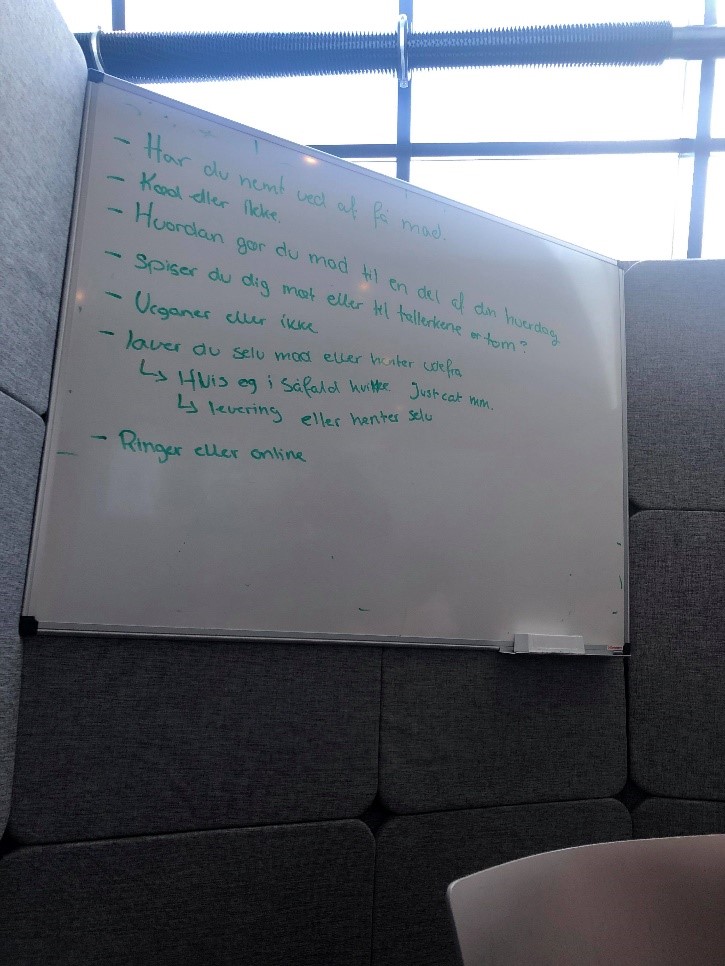 - Har du nemt ved at få mad.
- Kød eller ikke.
- Hvordan gør du mad til en del af din hverdag
- Spiser du dig mæt eller til tallerkene er tom?
- Veganer eller ikke
- laver du selv mad eller henter udefra
↳ Hvis eg i såfald hvilke Justeat mm.
↳ levering eller henter selv
- Ringer eller online
-